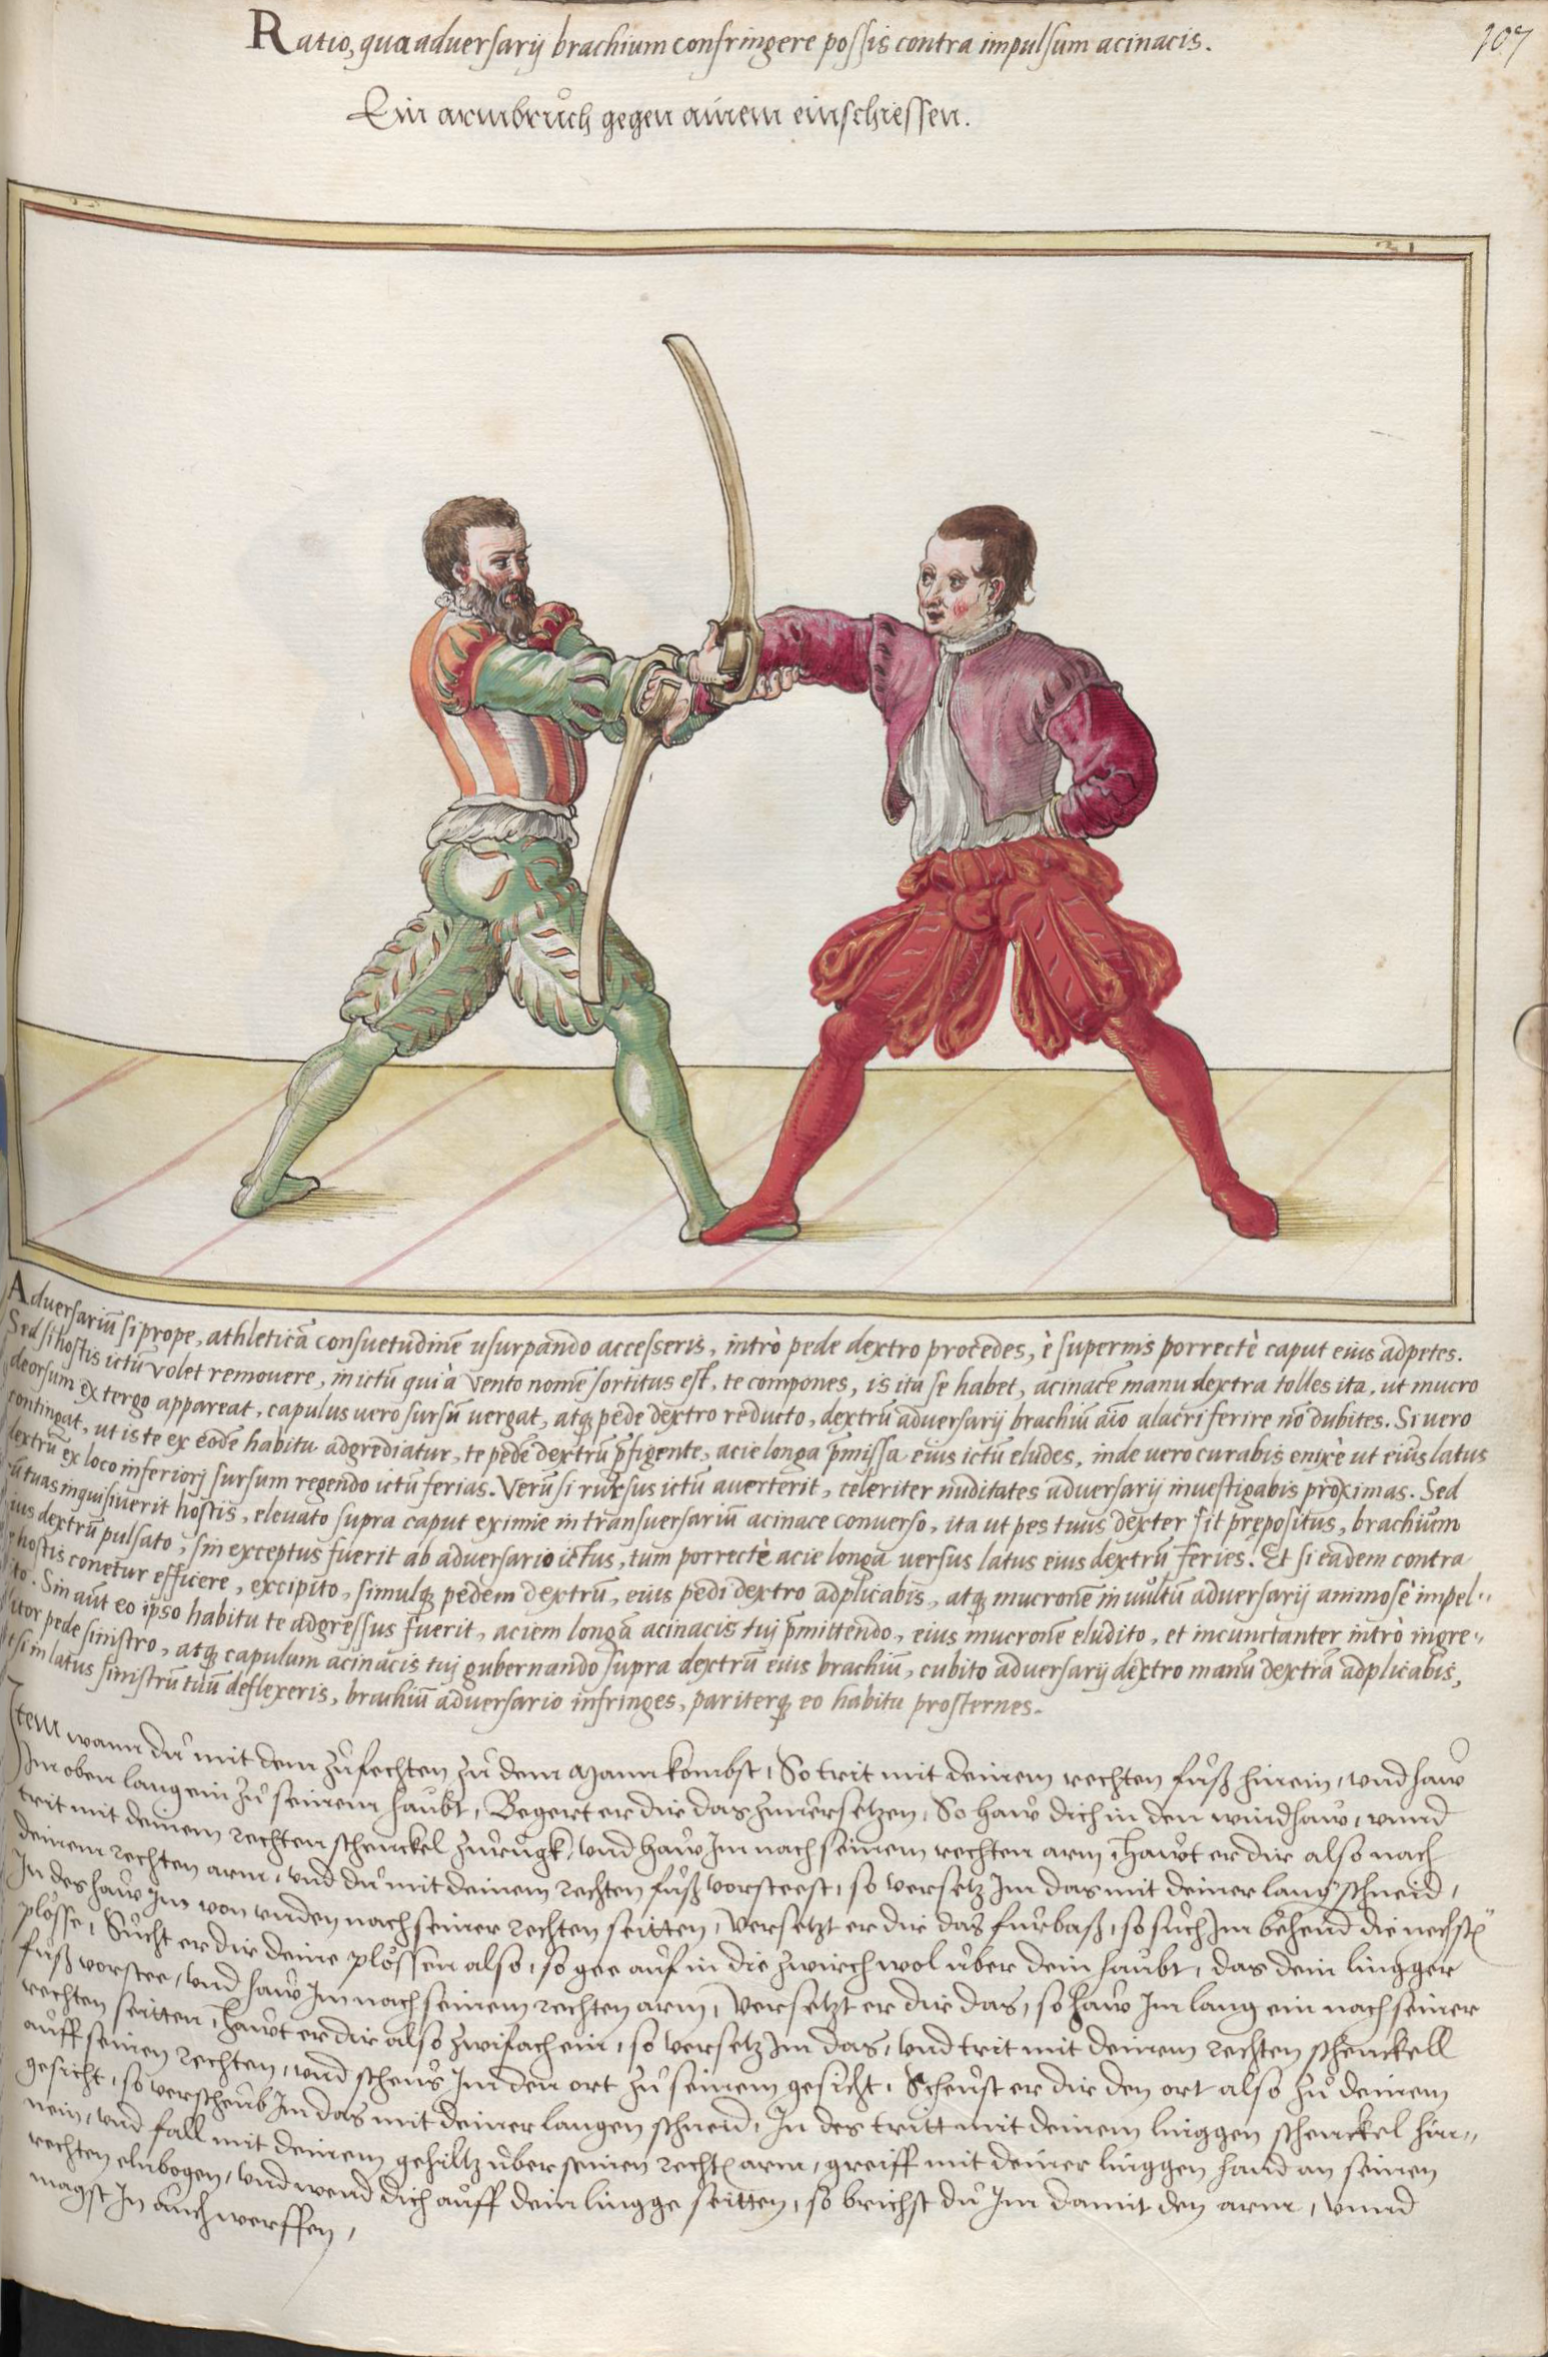 Ratio, qua adversarij brachium confringere possis contra impulsum acinacis.
107
Ein armbrůch gegen ainem einschiessen.
31
Adversariū si prope, athleticā consuetudinē usurpando accesseris, intrò pede dextro procedes, è supernis porrectè caput eius adpetes.
Sed si hostis ictū volet remouere, in ictū qui à vento nomē sortitus est, te compones, is ita se habet, acinacē manu dextra tolles ita, ut mucro
deorsum ex tergo appareat, capulus uero sursū vergat, atq pede dextro reducto, dextrū adversarij brachiū aīo alacri ferire nō dubites. Si uero
contingat, ut iste ex eodē habitu adgrediatur, te pedē dextrū p̄figente, acie longa p̄missa eius ictū eludes, inde uero curabis enixè ut eius latus
dextrū ex loco inferiorj sursum regendo ictū ferias. Verū si rursus ictū auerterit, celeriter nuditates adversarij inuestigabis proximas. Sed
ū tuas inquisiuerit hostis, eleuato supra caput eximie in transuersariū acinace conuerso, ita ut pes tuus dexter sit prepositus, brachium
ius dextrū pulsato, sin exceptus fuerit ab adversario ictus, tum porrectè acie longa uersus latus eius dextrū feries. Et si eadem contra
e hostis conetur efficere, excipito, simulq pedem dextrū, eius pedi dextro adplicabis, atq mucronē in uultū adversarij animosè impel-
ito. Sin aūt eo ipso habitu te adgressus fuerit, aciem longā acinacis tuj p̄mittendo, eius mucronē eludito, et incunctanter intrò ingre-
itor pede sinistro, atq capulum acinacis tuj gubernando supra dextrū eius brachiū, cubito adversarij dextro manū dextrā adplicabis,
si in latus sinistrū tuū deflexeris, brachiū adversario infringes, pariterq eo habitu prosternes.
Item wann dů mit dem zůfechten zů dem Mann kombst, So trit mit deinem rechten fůß hinein, vnd haw
Im oben lang ein zů seinem haubt, Begert er dir das zuuersetzen, So haw dich in den windhaw, vnnd
trit mit deinem rechten schenckel zůrugk, vnd haw Im nach seinem rechten arm, Hawt er dir also nach
deinem rechten arm, vnd dů mit deinem rechten fůß vorsteest, so versetz Im das mit deiner lang schneid,
In des haw Im von vnden nach seiner rechten seitten, Versetzt er dir das fürbaß, so sůch Im behend die nechst
plösse, Sůcht er dir deine plössen also, so gee auf in die zwirch wol über dein haubt, das dein lingger
fůß vorstee, vnd haw Im nach seinem rechten arm, Versetzt er dir das, so haw Im lang ein nach seiner
rechten seitten, Hawt er dir also zwifach ein, so versetz Im das, vnd trit mit deinem rechten schenckell
auff seinen rechten, vnd scheus Im den ort zů seinem gesicht, Scheust er dir den ort also zů deinem
gesicht, so verscheub Im das mit deiner langen schneid, In des tritt mit deinem linggen schenckel hin-
nein, vnd fall mit deinem gehiltz über seinen recht arm, greiff mit deiner linggen hand an seinen
rechten elnbogen, vnd wend dich auff dein lingge seitten, so brichst dů Im damit den arm, vnnd
magst In auch werffen,